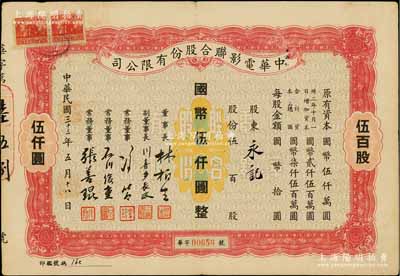 中華電影聯合股份有限公司
原有資本 國幣伍仟萬圓
國幣貳仟伍百萬圓
國幣柒仟伍百萬圓
每股金額 國幣拾圓
股東 永記
股份伍百股
國幣伍仟圓整
董事長 林柏生
副董事長 川喜多長政
常務董事
常務董事 石川俊重
常務董事 張善琨
中華民國三十三年五月十八日
伍百股
伍仟圓
華字 00658 號